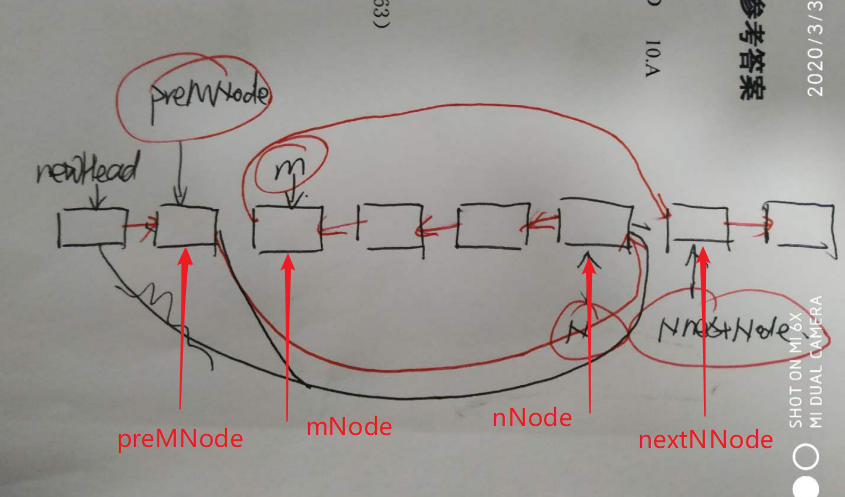 参考答案
10.A
63)
2020/3/3
preMNode
newHead
m
N
NnextNode
preMNode
mNode
nNode
nextNNode
SHOT ON MI 6X
MI DUAL CAMERA